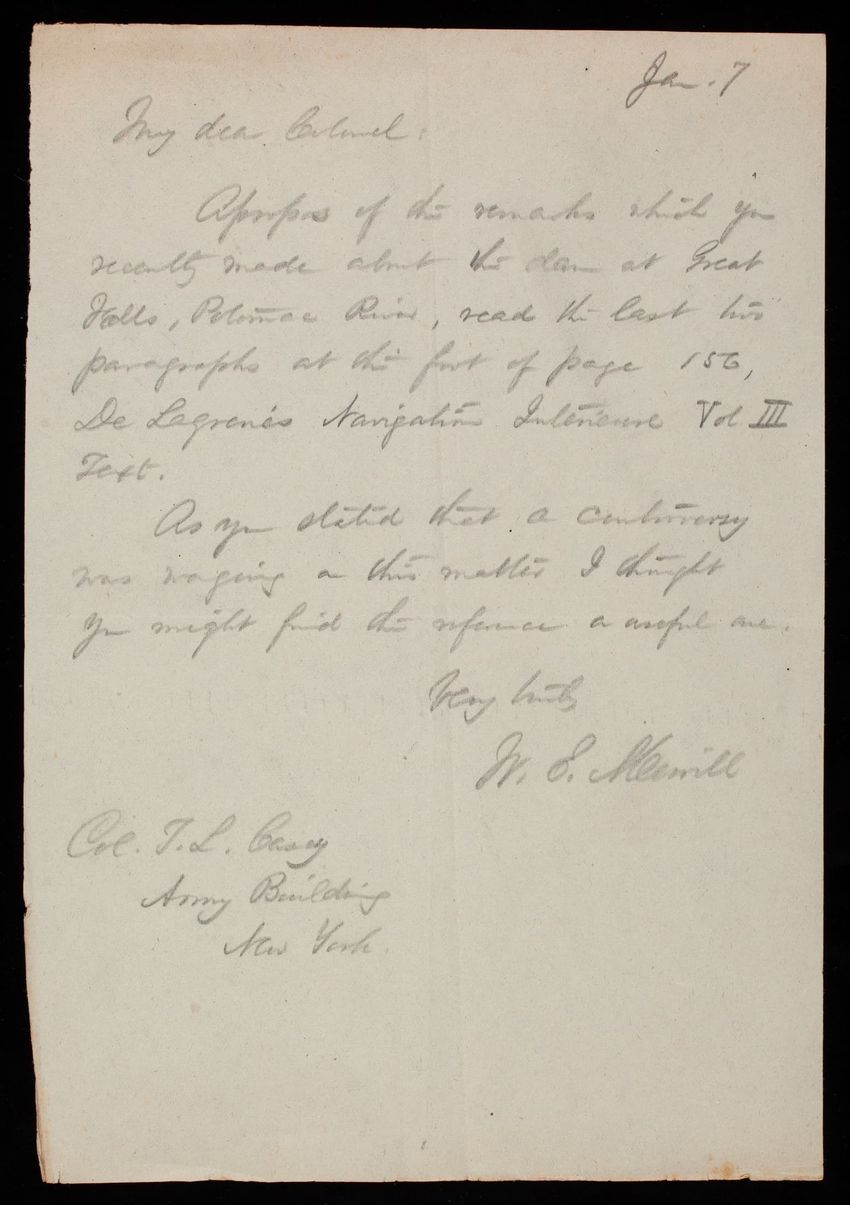 Jan. 7
My dear Colonel:
Apropos of the remarks which you
recently made about the dam at Great
Falls, Potomac River, read the last two
paragraphs at the foot of page 156,
De Lagrenés Navigation Intérieure Vol III
Text.
As you stated that a controversy
was waging on this matter I thought
you might find the reference a useful one.
Very truly
W. E. Merrill
Col. T. L. Casey
Army Building
New York.